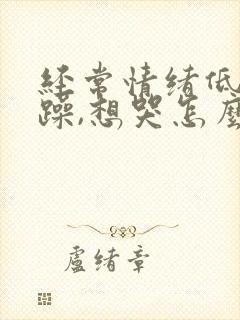 經常情緒低
躁,想哭怎麼
盧緒章